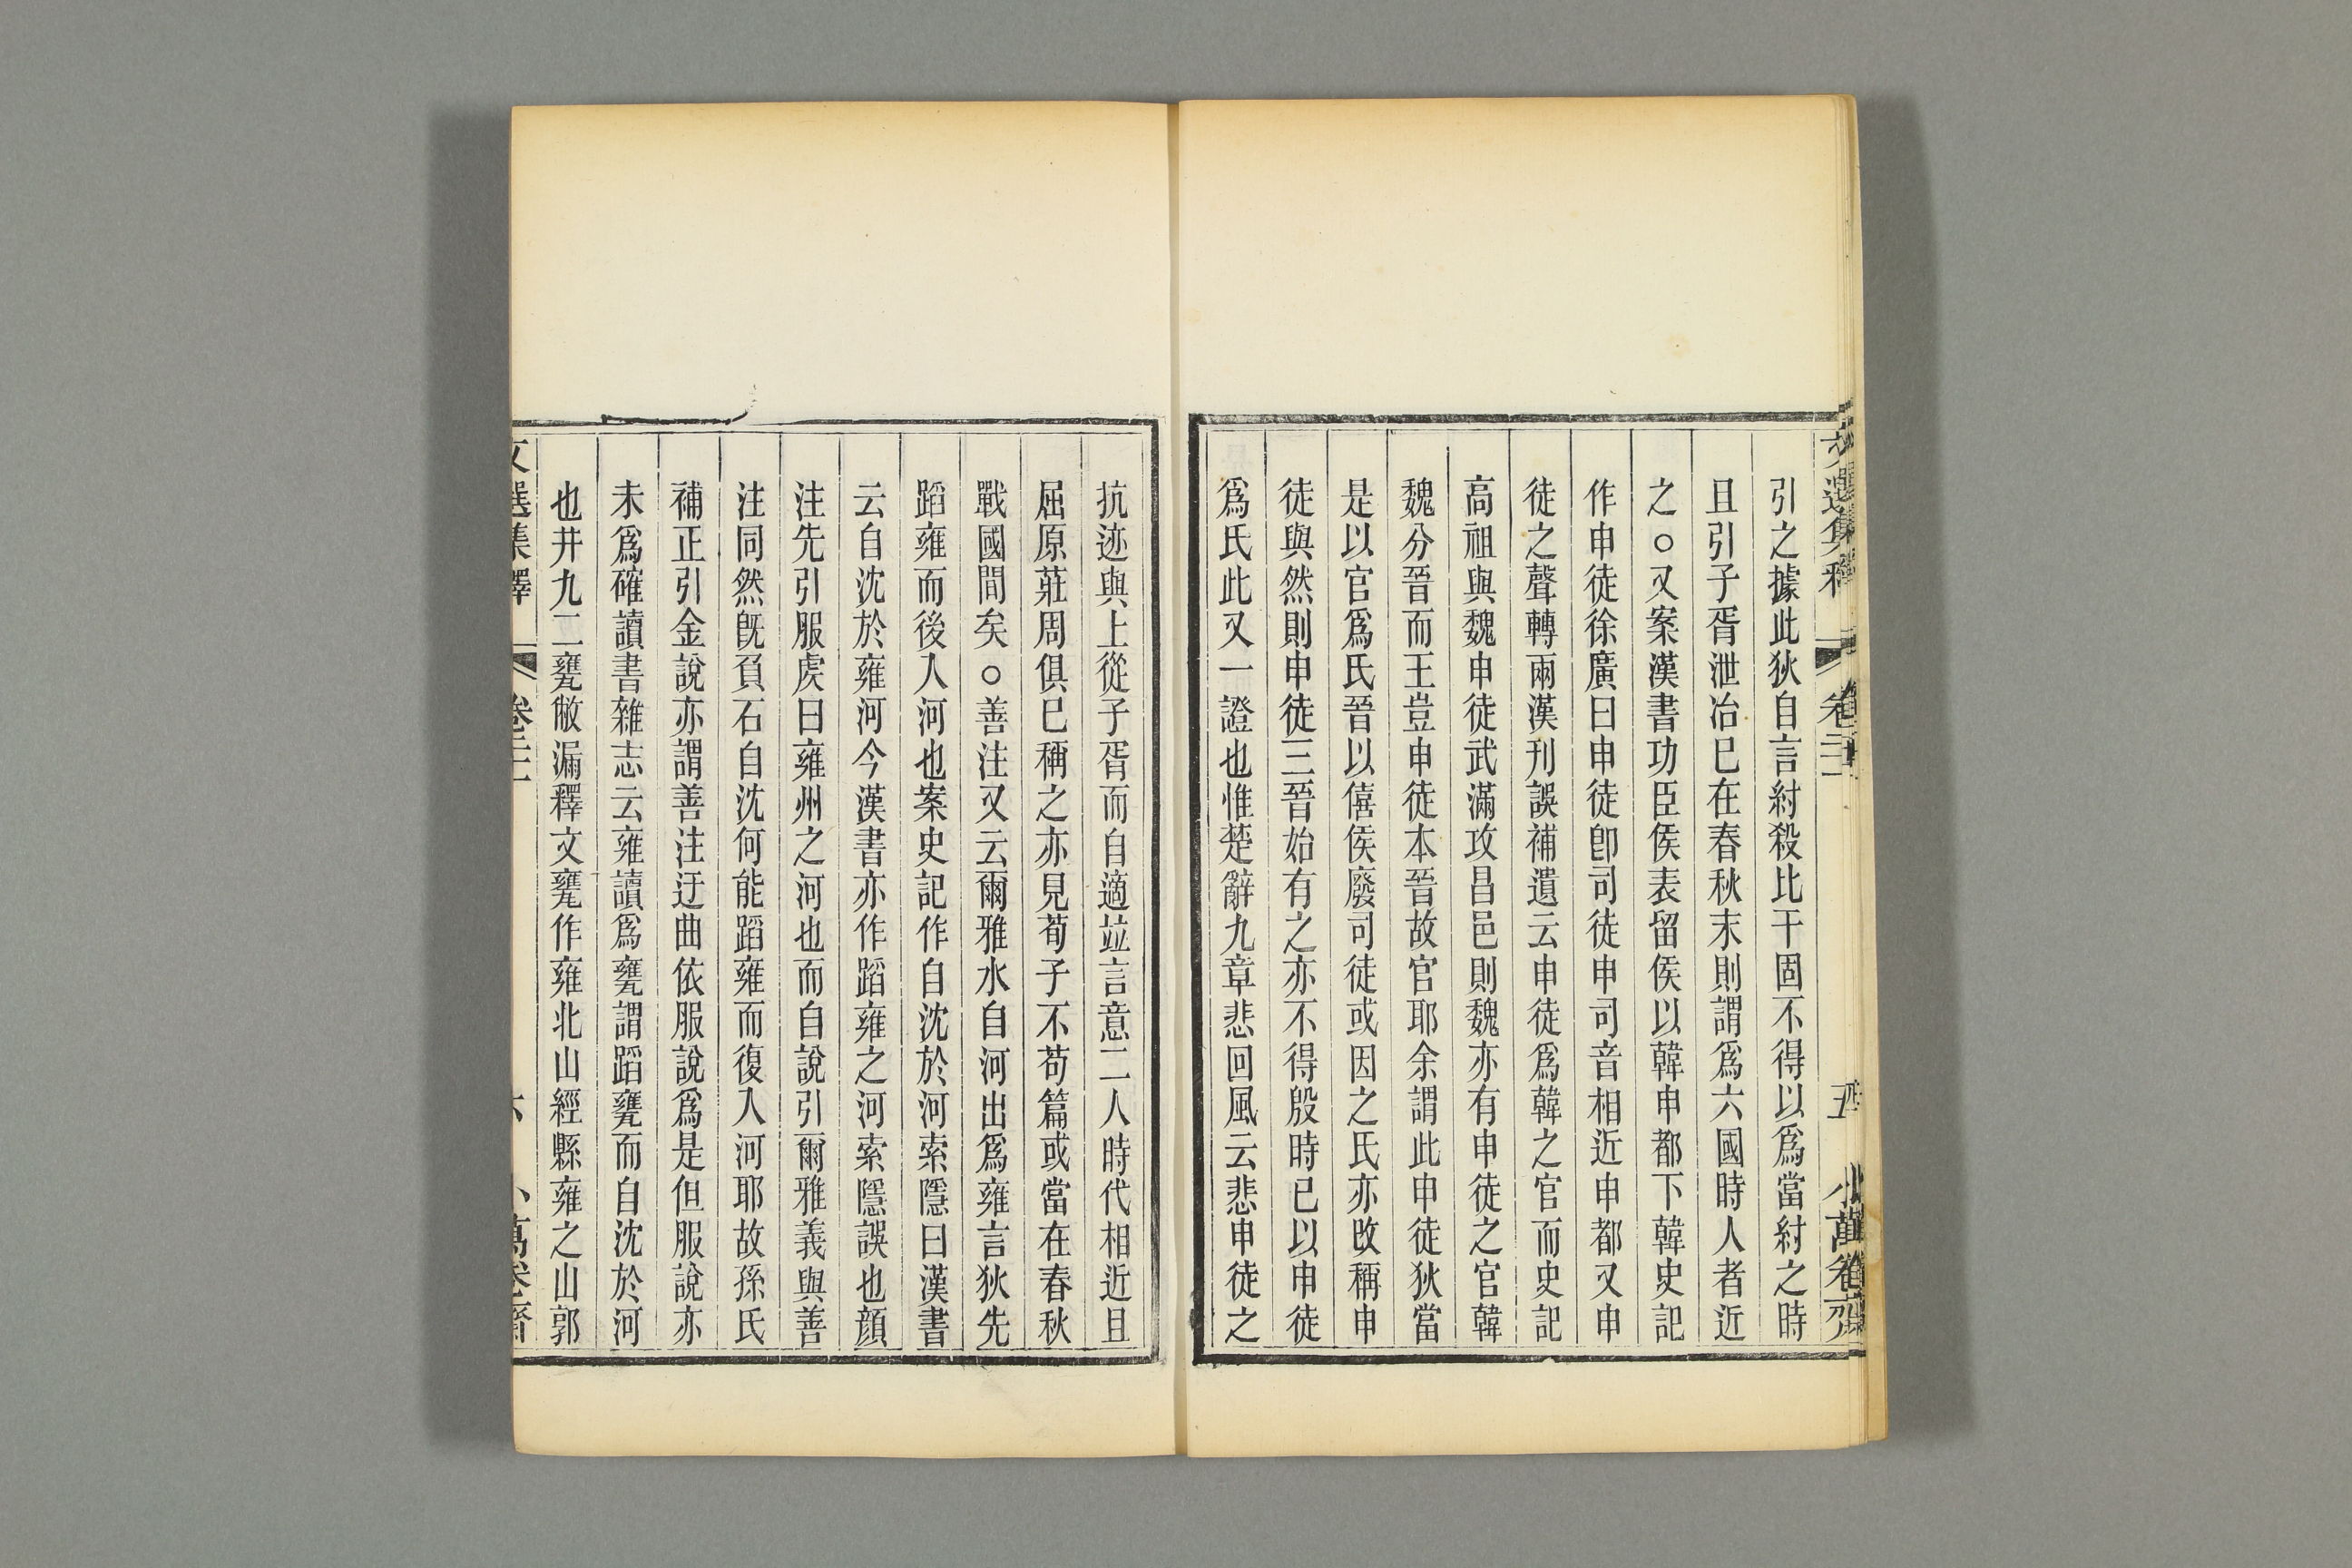 引之據此狄自言紂殺比干固不得以爲當紂之時
且引子胥泄冶已在春秋末則謂爲六國時人者近
之○又案漢書功臣侯表留侯以韓申都下韓史記
作申徒徐廣曰申徒卽司徒申司音相近申都又申
徒之聲轉兩漢刊誤補遺云申徒爲韓之官而史記
高祖與魏申徒武滿攻昌邑則魏亦有申徒之官韓
魏分晉而王豈申徒本晉故官耶余謂此申徒狄當
是以官爲氏晉以僖侯廢司徒或因之氏亦改稱申
徒與然則申徒三晉始有之亦不得殷時已以申徒
爲氏此又一證也惟楚辭九章悲回風云悲申徒之
抗迹與上從子胥而自適竝言意二人時代相近且
屈原莊周俱已稱之亦見荀子不苟篇或當在春秋
戰國間矣○善注又云爾雅水自河出爲雍言狄先
蹈雍而後人河也案史記作自沈於河索隱曰漢書
云自沈於雍河今漢書亦作蹈雍之河索隱誤也顔
注先引服虔曰雍州之河也而自說引爾雅義與善
注同然旣負石自沈何能蹈雍而復入河耶故孫氏
補正引金說亦謂善注迂曲依服說爲是但服說亦
未爲確讀書雜志云雍讀爲甕謂蹈甕而自沈於河
也井九二甕敝漏釋文甕作雍北山經縣雍之山郭
文選集釋 卷二十二 六 小萬卷齋